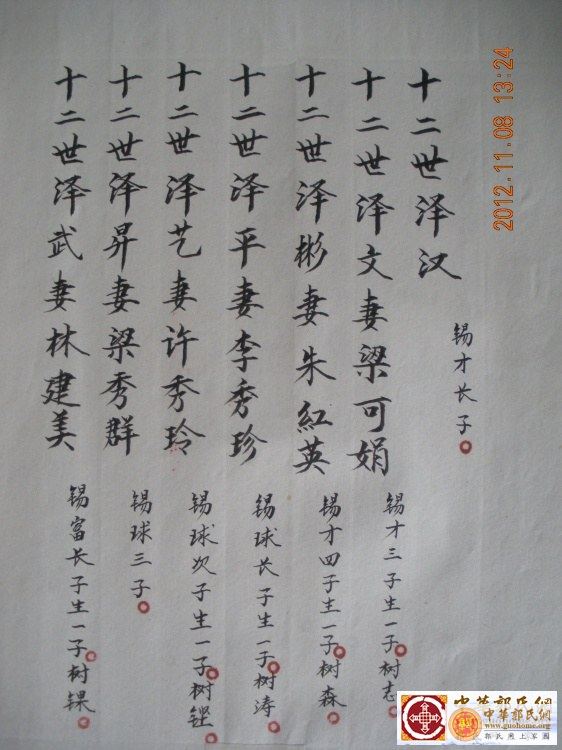 十二世泽汉
锡才长子
十二世泽文妻梁可娟
锡才三子生一子树志
十二世泽彬妻朱红英
锡才四子生一子树森
十二世泽平妻李秀珍
锡球长子生一子树涛
十二世泽艺妻许秀玲
锡球次子生一子树铿
十二世泽昇妻梁秀群
锡球三子
十二世泽武妻林建美
锡富长子生一子树锞
2012.11.08 13:24
中華郭氏網
www.guohome.org
郭氏网上家园